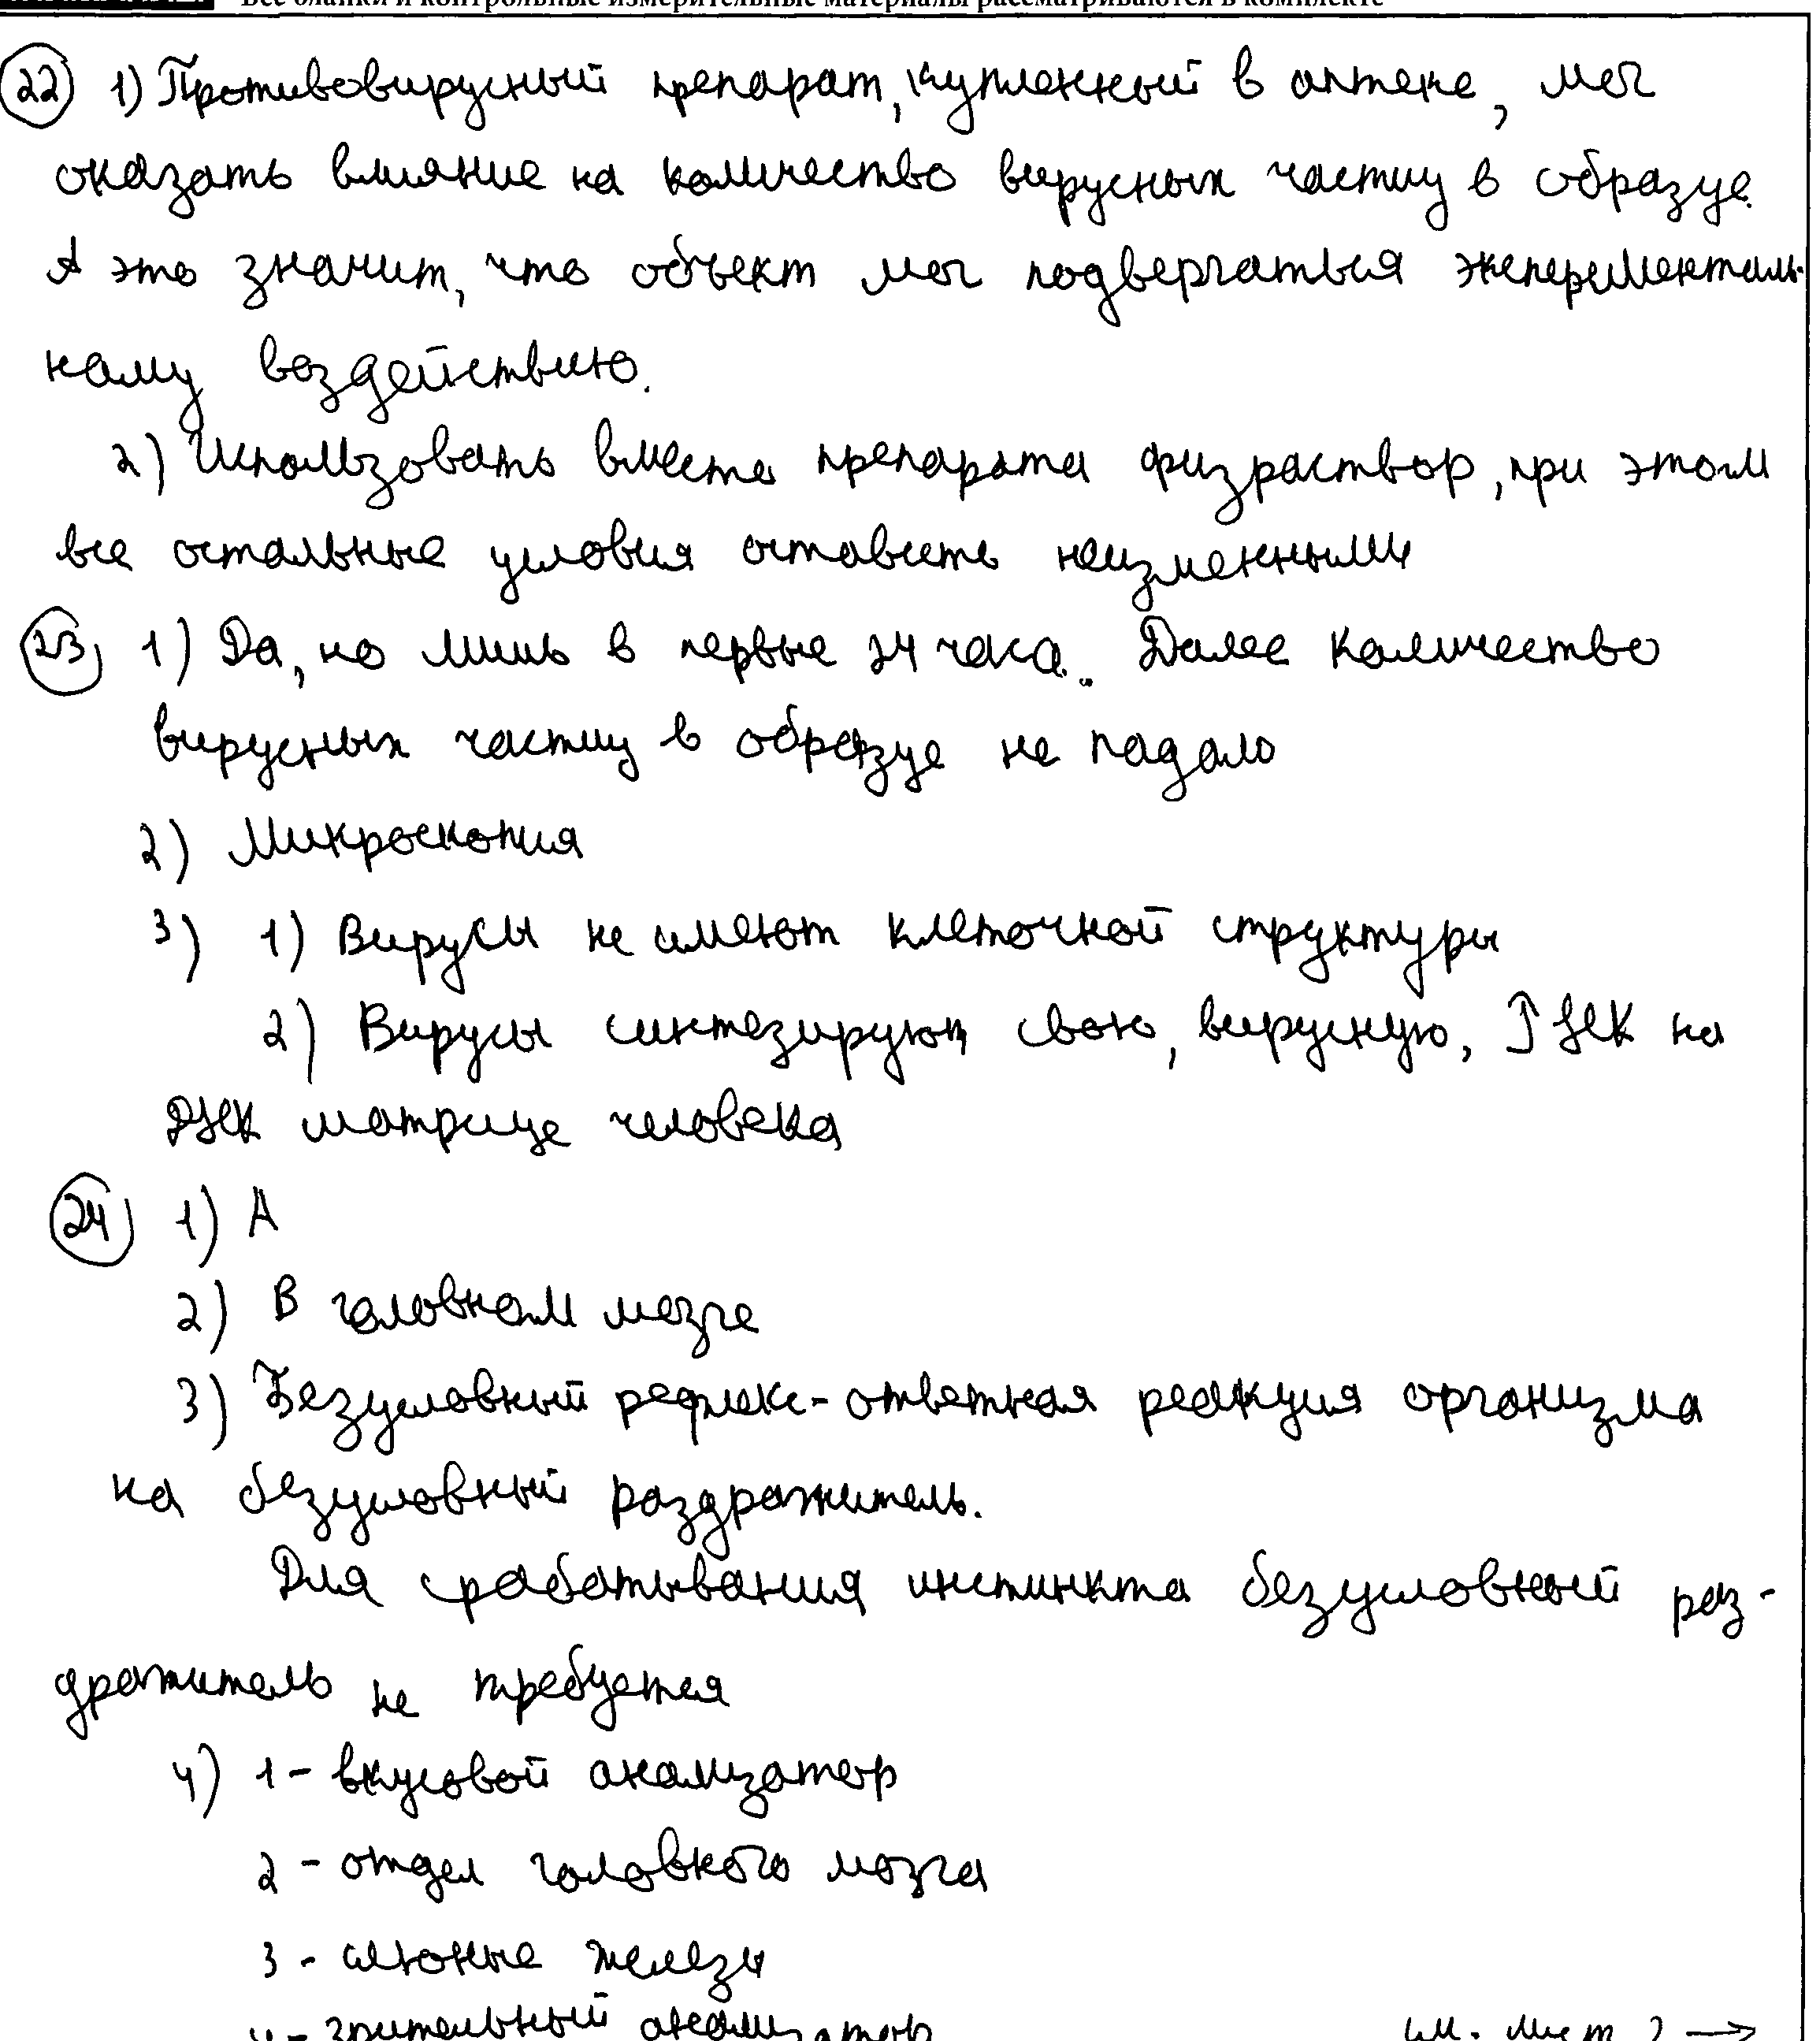 Все бланки и контрольные измерительные материалы рассматриваются в комплекте
22 1) Противовирусный препарат, купленный в аптеке, мог
оказать влияние на количество вирусных частиц в образце.
А это значит, что объект мог подвергаться эксперименталь-
ному воздействию.
2) Использовать вместо препарата физраствор, при этом
все остальные условия оставить неизменными
23 1) Да, но лишь в первые 24 часа. Далее количество
вирусных частиц в образце не падало
2) Микроскопия
3) 1) Вирусы не имеют клеточной структуры
2) Вирусы синтезируют свою, вирусную, ДНК на
ДНК матрице человека
24 1) А
2) В головном мозге
3) Безусловный рефлекс - ответная реакция организма
на безусловный раздражитель.
Для срабатывания инстинкта безусловный раз-
дражитель не требуется
4) 1 - вкусовой анализатор
2 - отдел головного мозга
3 - слюные железы
4 - зрительный анализатор
см. лист 2 →